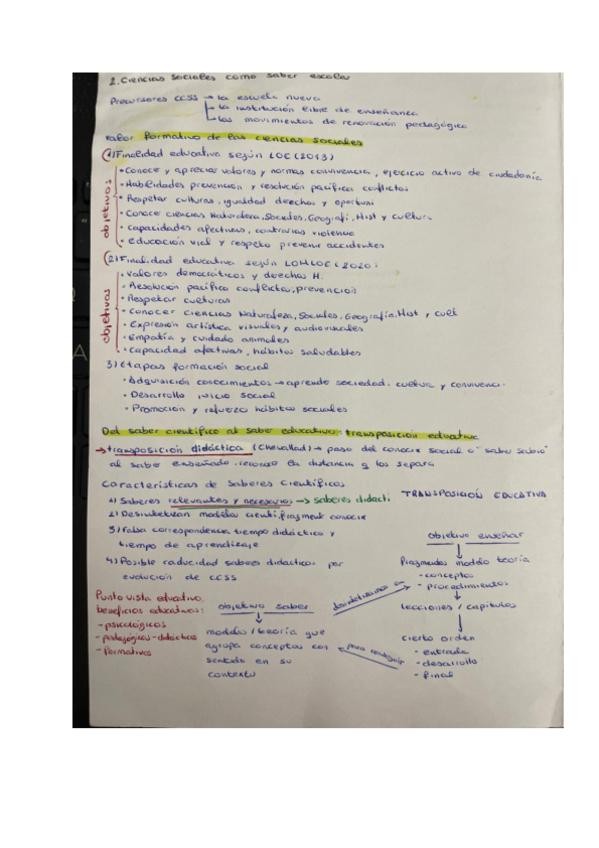 2. Ciencias Sociales como saber escolar
Precursores CCSS → la escuela nueva
→ la institución libre de enseñanza
→ los movimientos de renovación pedagógica
Valor formativo de las ciencias sociales
1) Finalidad educativa según LOE (2013)
objetivos
• Conoce y apreciar valores y normas convivencia, ejercicio activo de ciudadanía
• Habilidades prevención y resolución pacífica conflictos
• Respetar culturas, igualdad derechos y oportuni
• Conoce ciencias Naturaleza, Sociales, Geografí, Hist y cultur
• capacidades afectivas, contrarias violencia
• Educación vial y respeto prevenir accidentes
2) Finalidad educativa según LOMLOE (2020):
objetivos
• Valores democráticos y derechos H.
• Resolución pacífica conflictos, prevención
• Respetar culturas
• Conocer ciencias Naturaleza, Sociales, Geografía, Hist y cult
• Expresión artística visuales y audiovisuales
• Empatía y cuidado animales
• Capacidad afectivas, hábitos saludables
3) Etapas formación social
• Adquisición conocimientos → aprende sociedad, cultura y convivenci.
• Desarrollo juicio social
• Promoción y refuerzo hábitos sociales
Del saber científico al saber educativo: transposición educativa
→ transposición didáctica (Chevallad) → paso del conoce social o "saber sabio"
al saber enseñado, recorre la distancia q los separa
Características de Saberes Científicos
1) Saberes relevantes y necesarios → saberes didácti
2) Desintetizan modelos cientifi, fragment conocie
3) Falsa correspondencia tiempo didáctico y
tiempo de aprendizaje
4) Posible caducidad saberes didácticos por
evolución de CCSS
TRANSPOSICIÓN EDUCATIVA
objetivo enseñar
Fragmentos modelo teoría
- conceptos
- procedimientos
lecciones / capítulos
cierto orden
- entrada
- desarrollo
- final
Punto vista educativo,
beneficios educativos:
- psicológicos
- pedagógicos-didácticos
- formativos
objetivo saber
modelo / teoría que
agrupa conceptos con
sentido en su
contexto
para conseguir